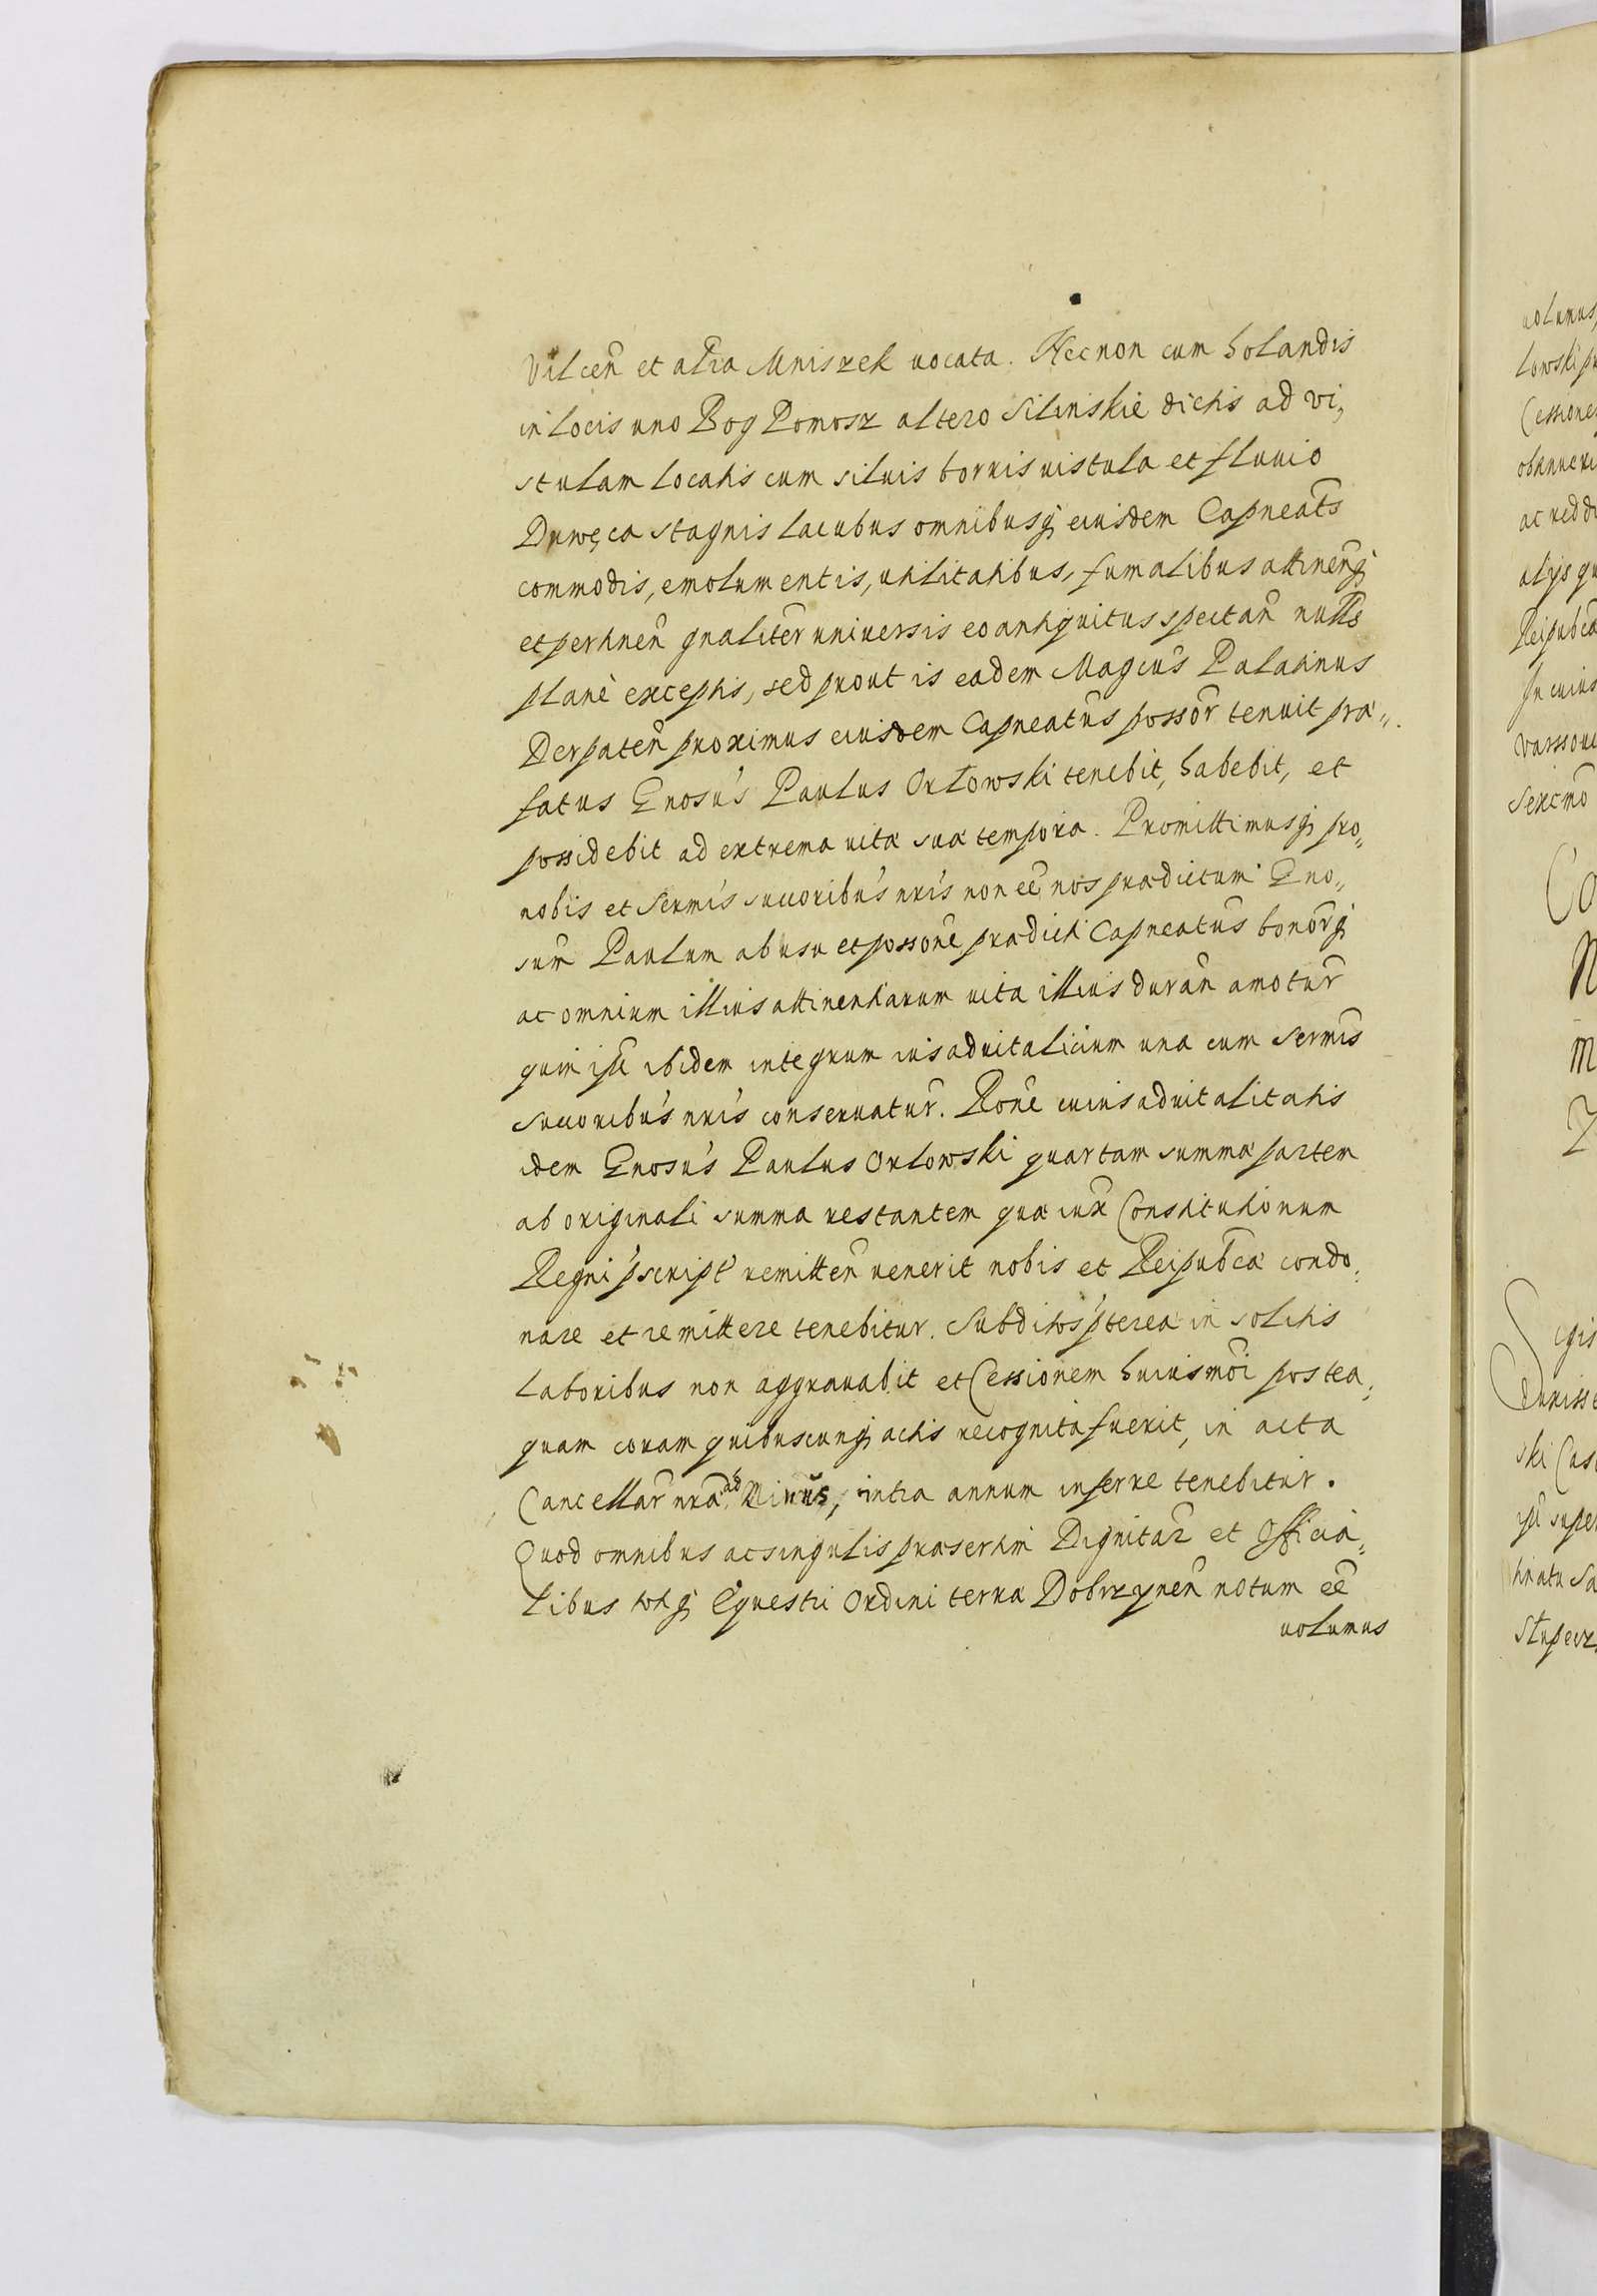 Vilcen̄ et alia Mniszek uocata. Necnon cum holandis
in locis uno Bog Pomosz altero Silinskie dictis ad vi,
stulam locatis cum siluis borris uistula et fluuio
Drwęca stagnis lacubus omnibusq; eiusdem Capneat̄s
commodis, emolumentis, utilitatibus, fumalibus attinen̄q;
et pertinen̄ gn̄aliter uniuersis eo antiquitus spectan̄ nullis
planè exceptis, sed prout is eadem Magcus Palatinus
Derpaten̄ proximus eiusdem Capneatus posso͠r tenuit præ„
fatus Gnosus Paulus Orłowski tenebit, habebit, et
possidebit ad extrema uitæ suæ tempora. Promittimusq; pro„
nobis et Sermis succoribus nris non eē nos prædictum Gno„
sum Paulum ab usu et possone prædicti Capneatus bonorq;
ac omnium illius attinentiarum uita illius duran̄ amotur̄
quin ipē ibidem integrum ius aduitalicium una cum Sermis
Succoribus nris conseruatur̄. Rone cuius aduitalitatis
idem Gnosus Paulus Orlowski quartam summæ partem
ab originali summa restantem quæ iux̄ Constitutionum
Regni pscript̄ remitten̄ uenerit nobis et Reipubcæ condo„
nare et remittere tenebitur. Subditos pterea in solitis
laboribus non aggrauabit et Cessionem huiusmoi postea„
quam coram quibuscunq; actis recognita fuerit, in acta
Cancellar̄ nræ ad Minus, intra annum inferre tenebitur.
Quod omnibus ac singulis præsertim Dignitar̄ et Officia„
libus totiq; Equestri Ordini terræ Dobrzynen̄ notum eē
uolumus
uolumus
lowski
Cessione
obtinueri
ac redd
alijs qu
Reipubcæ
In cuius
Varssoui
Co
N
m
Z
igis
ski Cas
ipē super